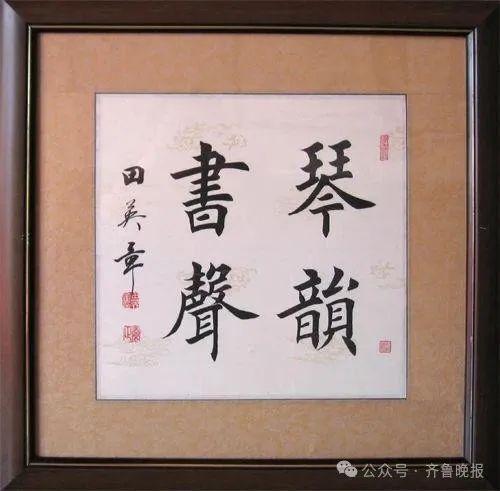 琴韻
書聲
田英章
公众号·齐鲁晚报